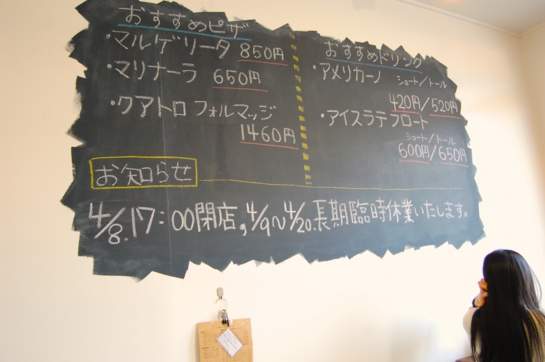 おすすめピザ
・マルゲリータ 850円
・マリナーラ 650円
・クアトロ フォルマッジ
1460円
おすすめドリンク
・アメリカーノ ショート/トール
420円/520円
・アイスラテフロート
ショート/トール
600円/650円
お知らせ
4/8.17:00閉店,4/9〜4/20.長期臨時休業いたします。